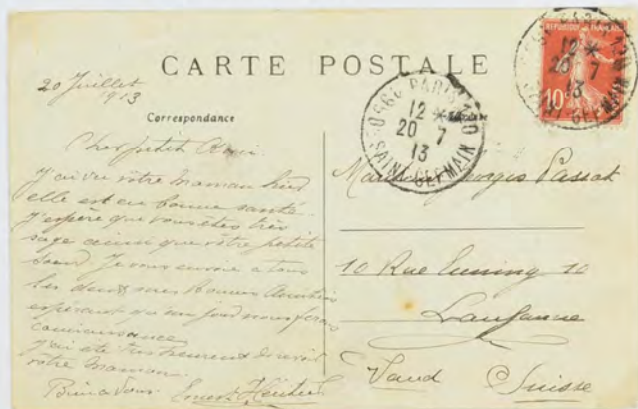 CARTE POSTALE
20 Juillet
1913
Correspondance
Cher petit Ami.
J'ai vu vôtre maman hier
elle est en bonne santé.
J'espère que vous êtes très
sage ainsi que vôtre petite
soeur. Je vous envoie a tous
les deux mes bonnes Amitiés
espérant qu'un jour nous ferons
connaissance
J'ai été très heureux de revoir
vôtre maman.
Bien a vous. Ernest
REPUBLIQUE FRANÇAISE
10c
PARIS
12 *
20 - 7
13
SAINT GERMAIN
12 *
20 7
13
SAINT GERMAIN
Georges Passat
10 Rue Euning 10
Lausanne
Vaud Suisse